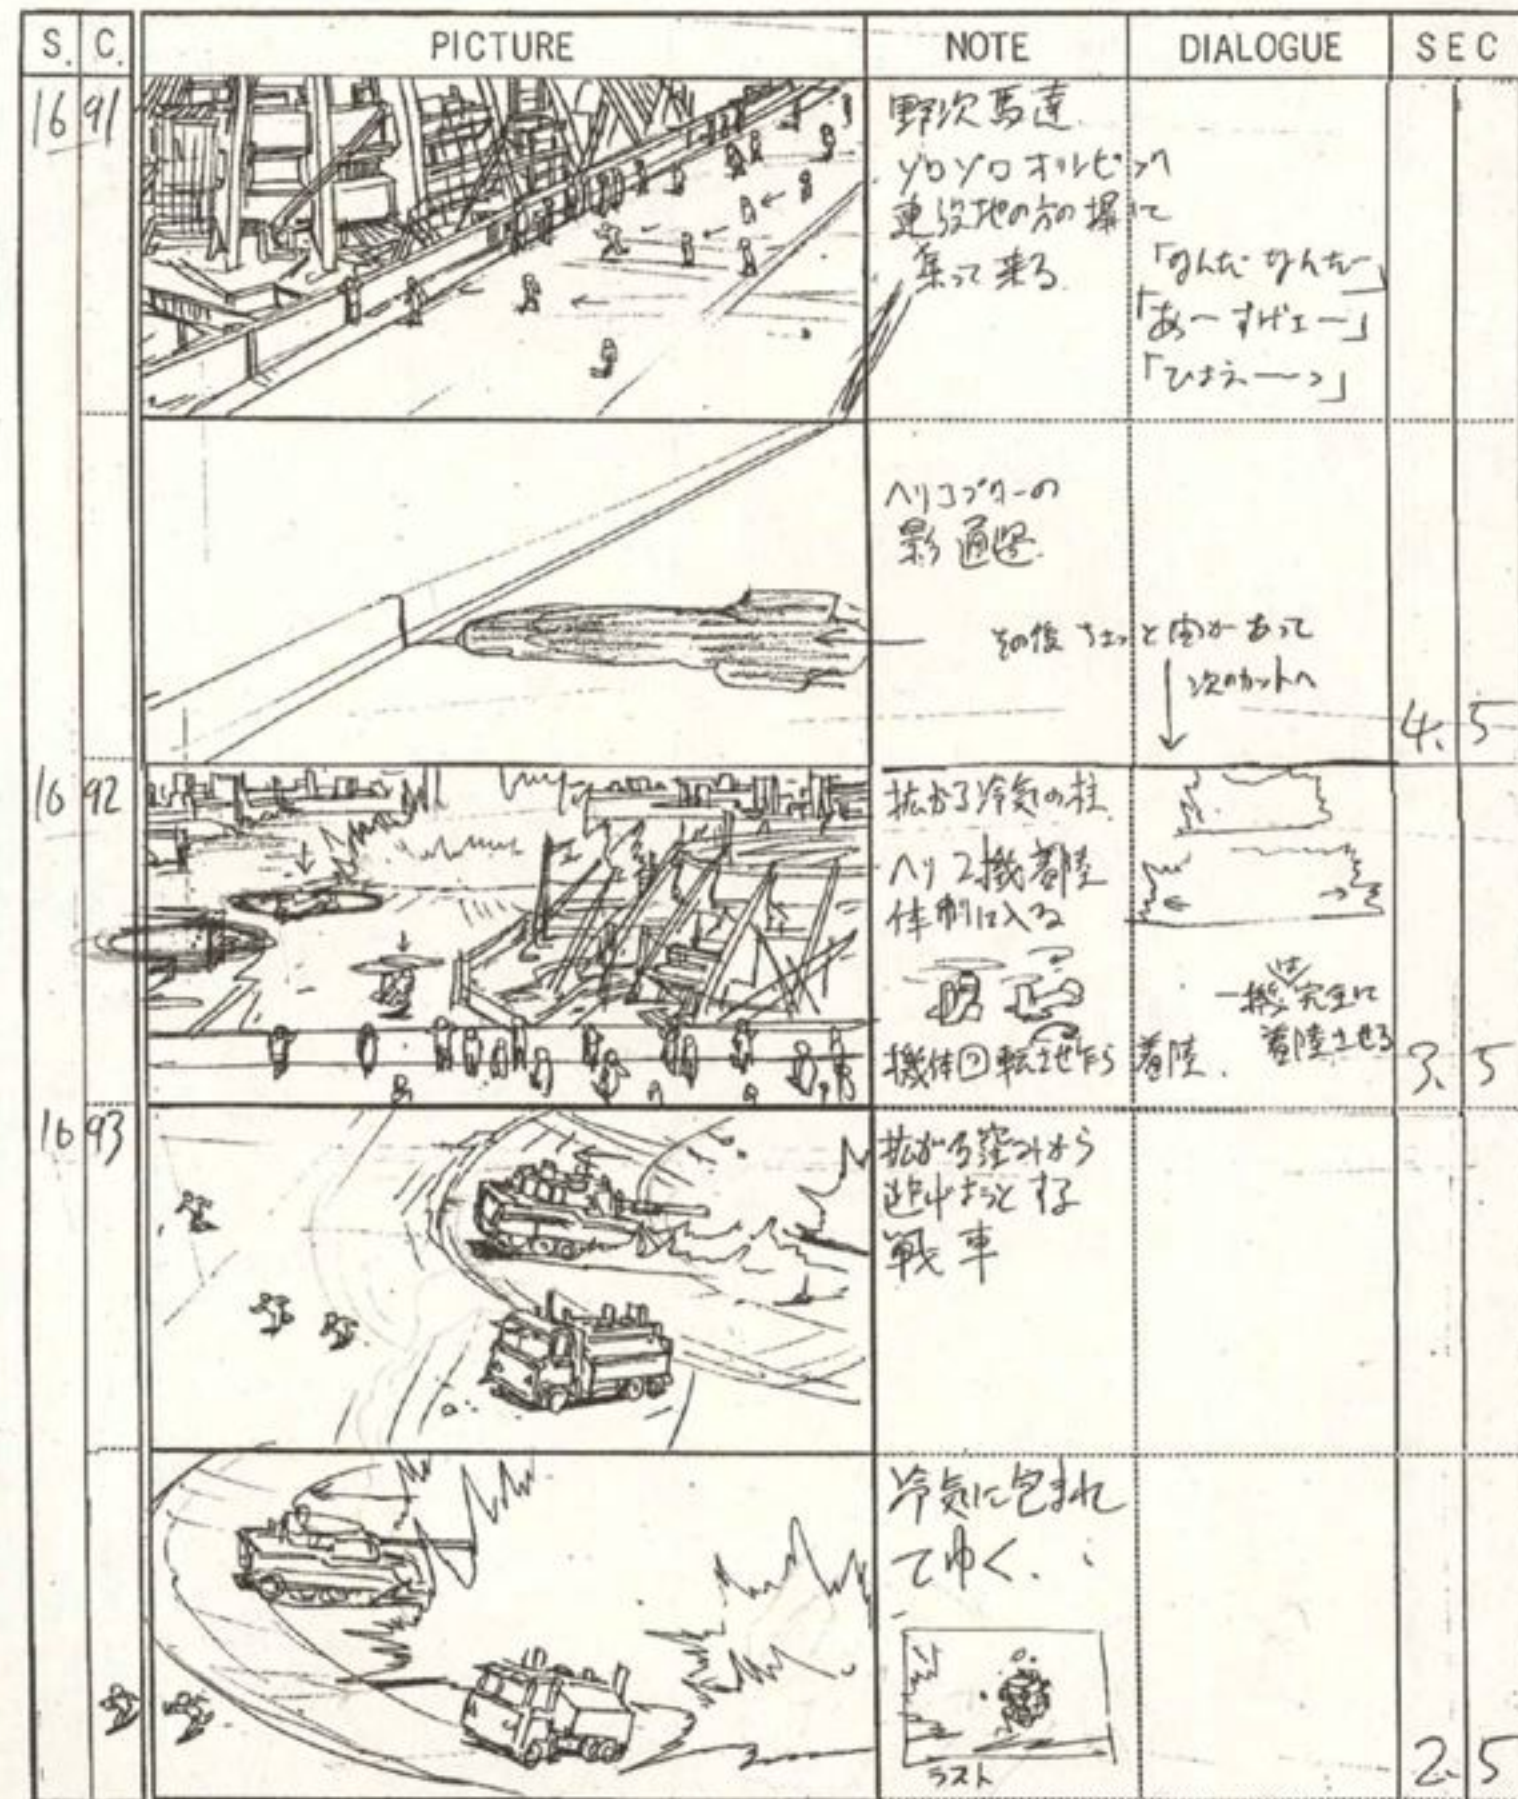 S. C. PICTURE NOTE DIALOGUE SEC
16 91
野次馬達
ゾロゾロオリンピック
建設地の方の
集って来る
「なんだなんだー」
「あ〜すげェー」
「ひょえ〜〜っ」
ヘリコプターの
影通過
その後ちょっと間があって
次のカットへ
4. 5
16 92
拡がる冷気の柱
ヘリ2機着陸
体制に入る
一機は完全に
着陸させる
機体回転させ乍ら 着陸.
3. 5
16 93
拡がる窪みから
逃げようとする
戦車
冷気に包まれ
てゆく.
ラスト
2. 5